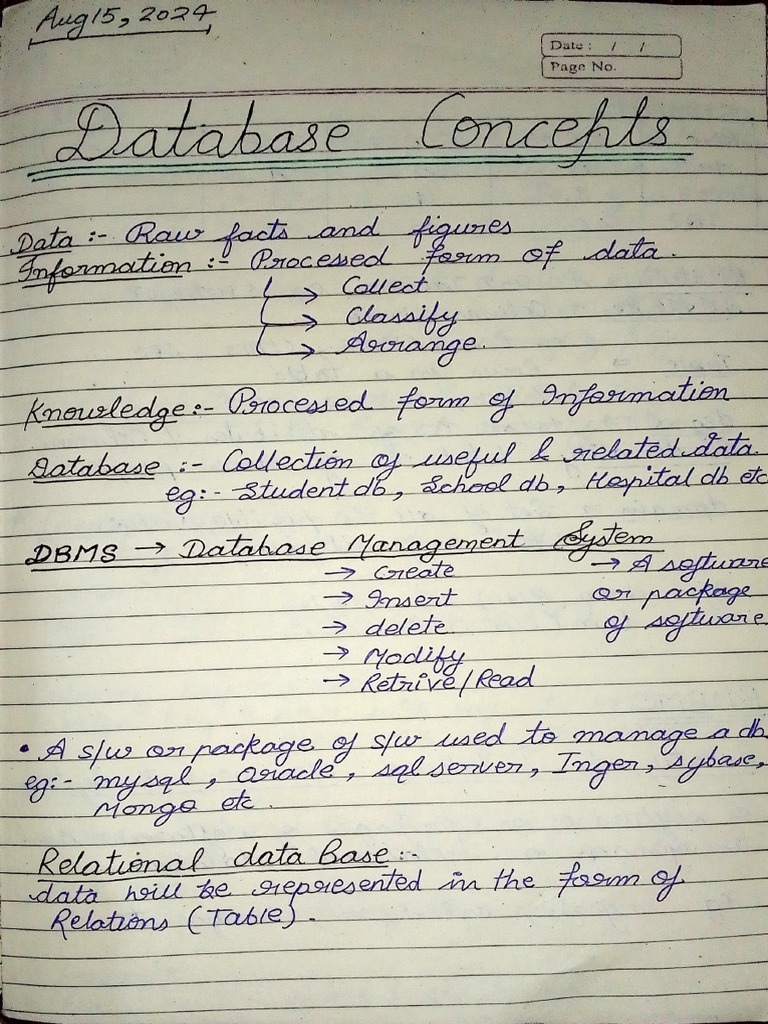 Aug 15, 2024
Date : / /
Page No.
Database Concepts
Data :- Raw facts and figures
Information :- Processed form of data.
→ Collect
→ Classify
→ Arrange.
Knowledge :- Processed form of Information
Database :- Collection of useful & related data.
eg:- Student db, School db, Hospital db etc
DBMS → Database Management System
→ Create → A software
→ Insert or package
→ delete of software
→ Modify
→ Retrive/Read
• A s/w or package of s/w used to manage a db.
eg:- mysql, Oracle, sql server, Inger, sybase,
Mongo etc.
Relational data Base :-
data will be represented in the form of
Relations (Table).